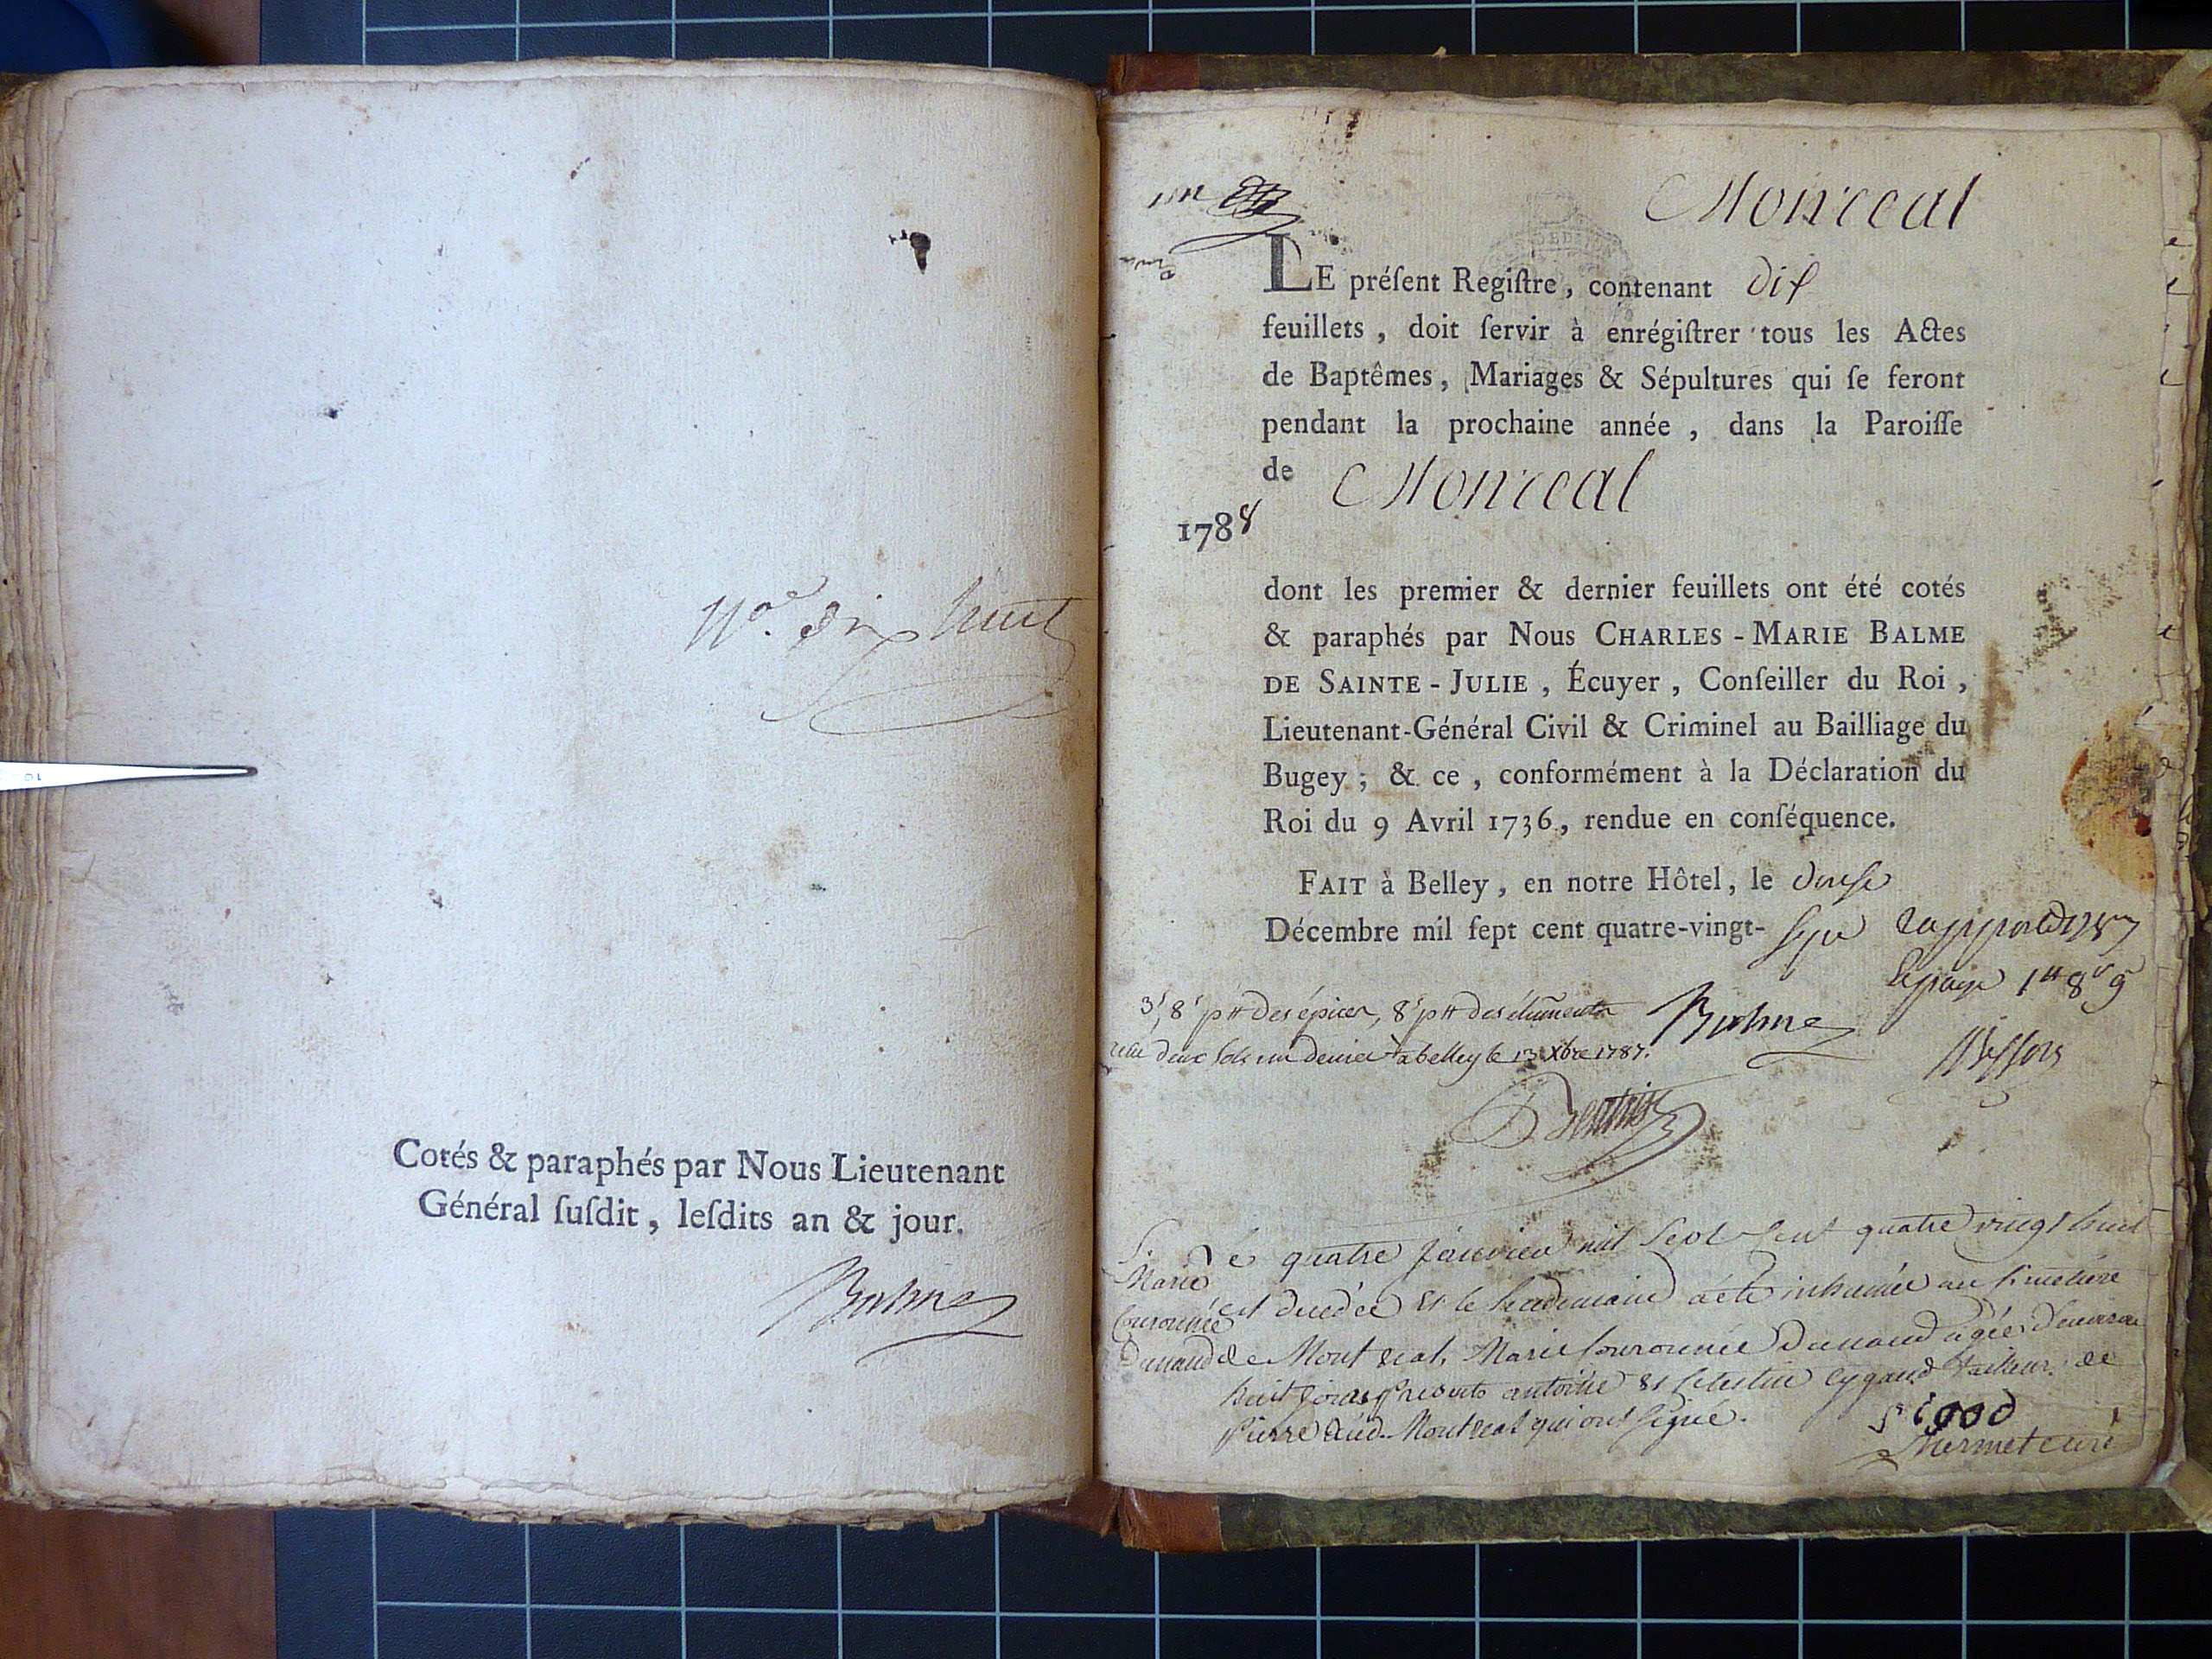 No. dix huit
Cotés & paraphés par Nous Lieutenant
Général ſuſdit, leſdits an & jour.
Balme
un
Monreal
LE préſent Regiſtre, contenant dix
feuillets, doit ſervir à enrégiſtrer tous les Actes
de Baptêmes, Mariages & Sépultures qui ſe feront
pendant la prochaine année, dans la Paroiſſe
de Monreal
1788
dont les premier & dernier feuillets ont été cotés
& paraphés par Nous CHARLES-MARIE BALME
DE SAINTE-JULIE, Écuyer, Conſeiller du Roi,
Lieutenant-Général Civil & Criminel au Bailliage du
Bugey; & ce, conformément à la Déclaration du
Roi du 9 Avril 1736, rendue en conſéquence.
FAIT à Belley, en notre Hôtel, le douse
Décembre mil ſept cent quatre-vingt-sept
Balme
deux sols un denier a belley le 13 Xbre 1787.
S.
Marie
Couronnée
Dunand
Le quatre janvier mil sept cent quatre vingt huit
est decedée et le lendemain a été inhumée au simetiere
de Montreal, Marie Couronnée Dunand agée d'environ
huit jours presents antoine et celestin tailleur de
pierre dud. Montreal qui ont signé.